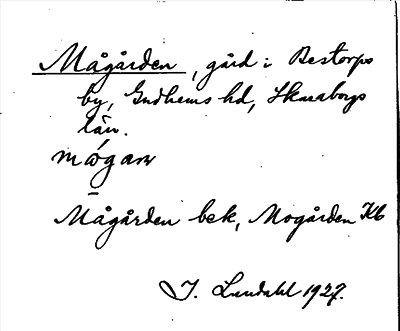 Mågården, gård i Bestorps
by, Gudhems hd, Skaraborgs
län.
Mågården bek, Mogården Kb
I. Lundahl 1927.